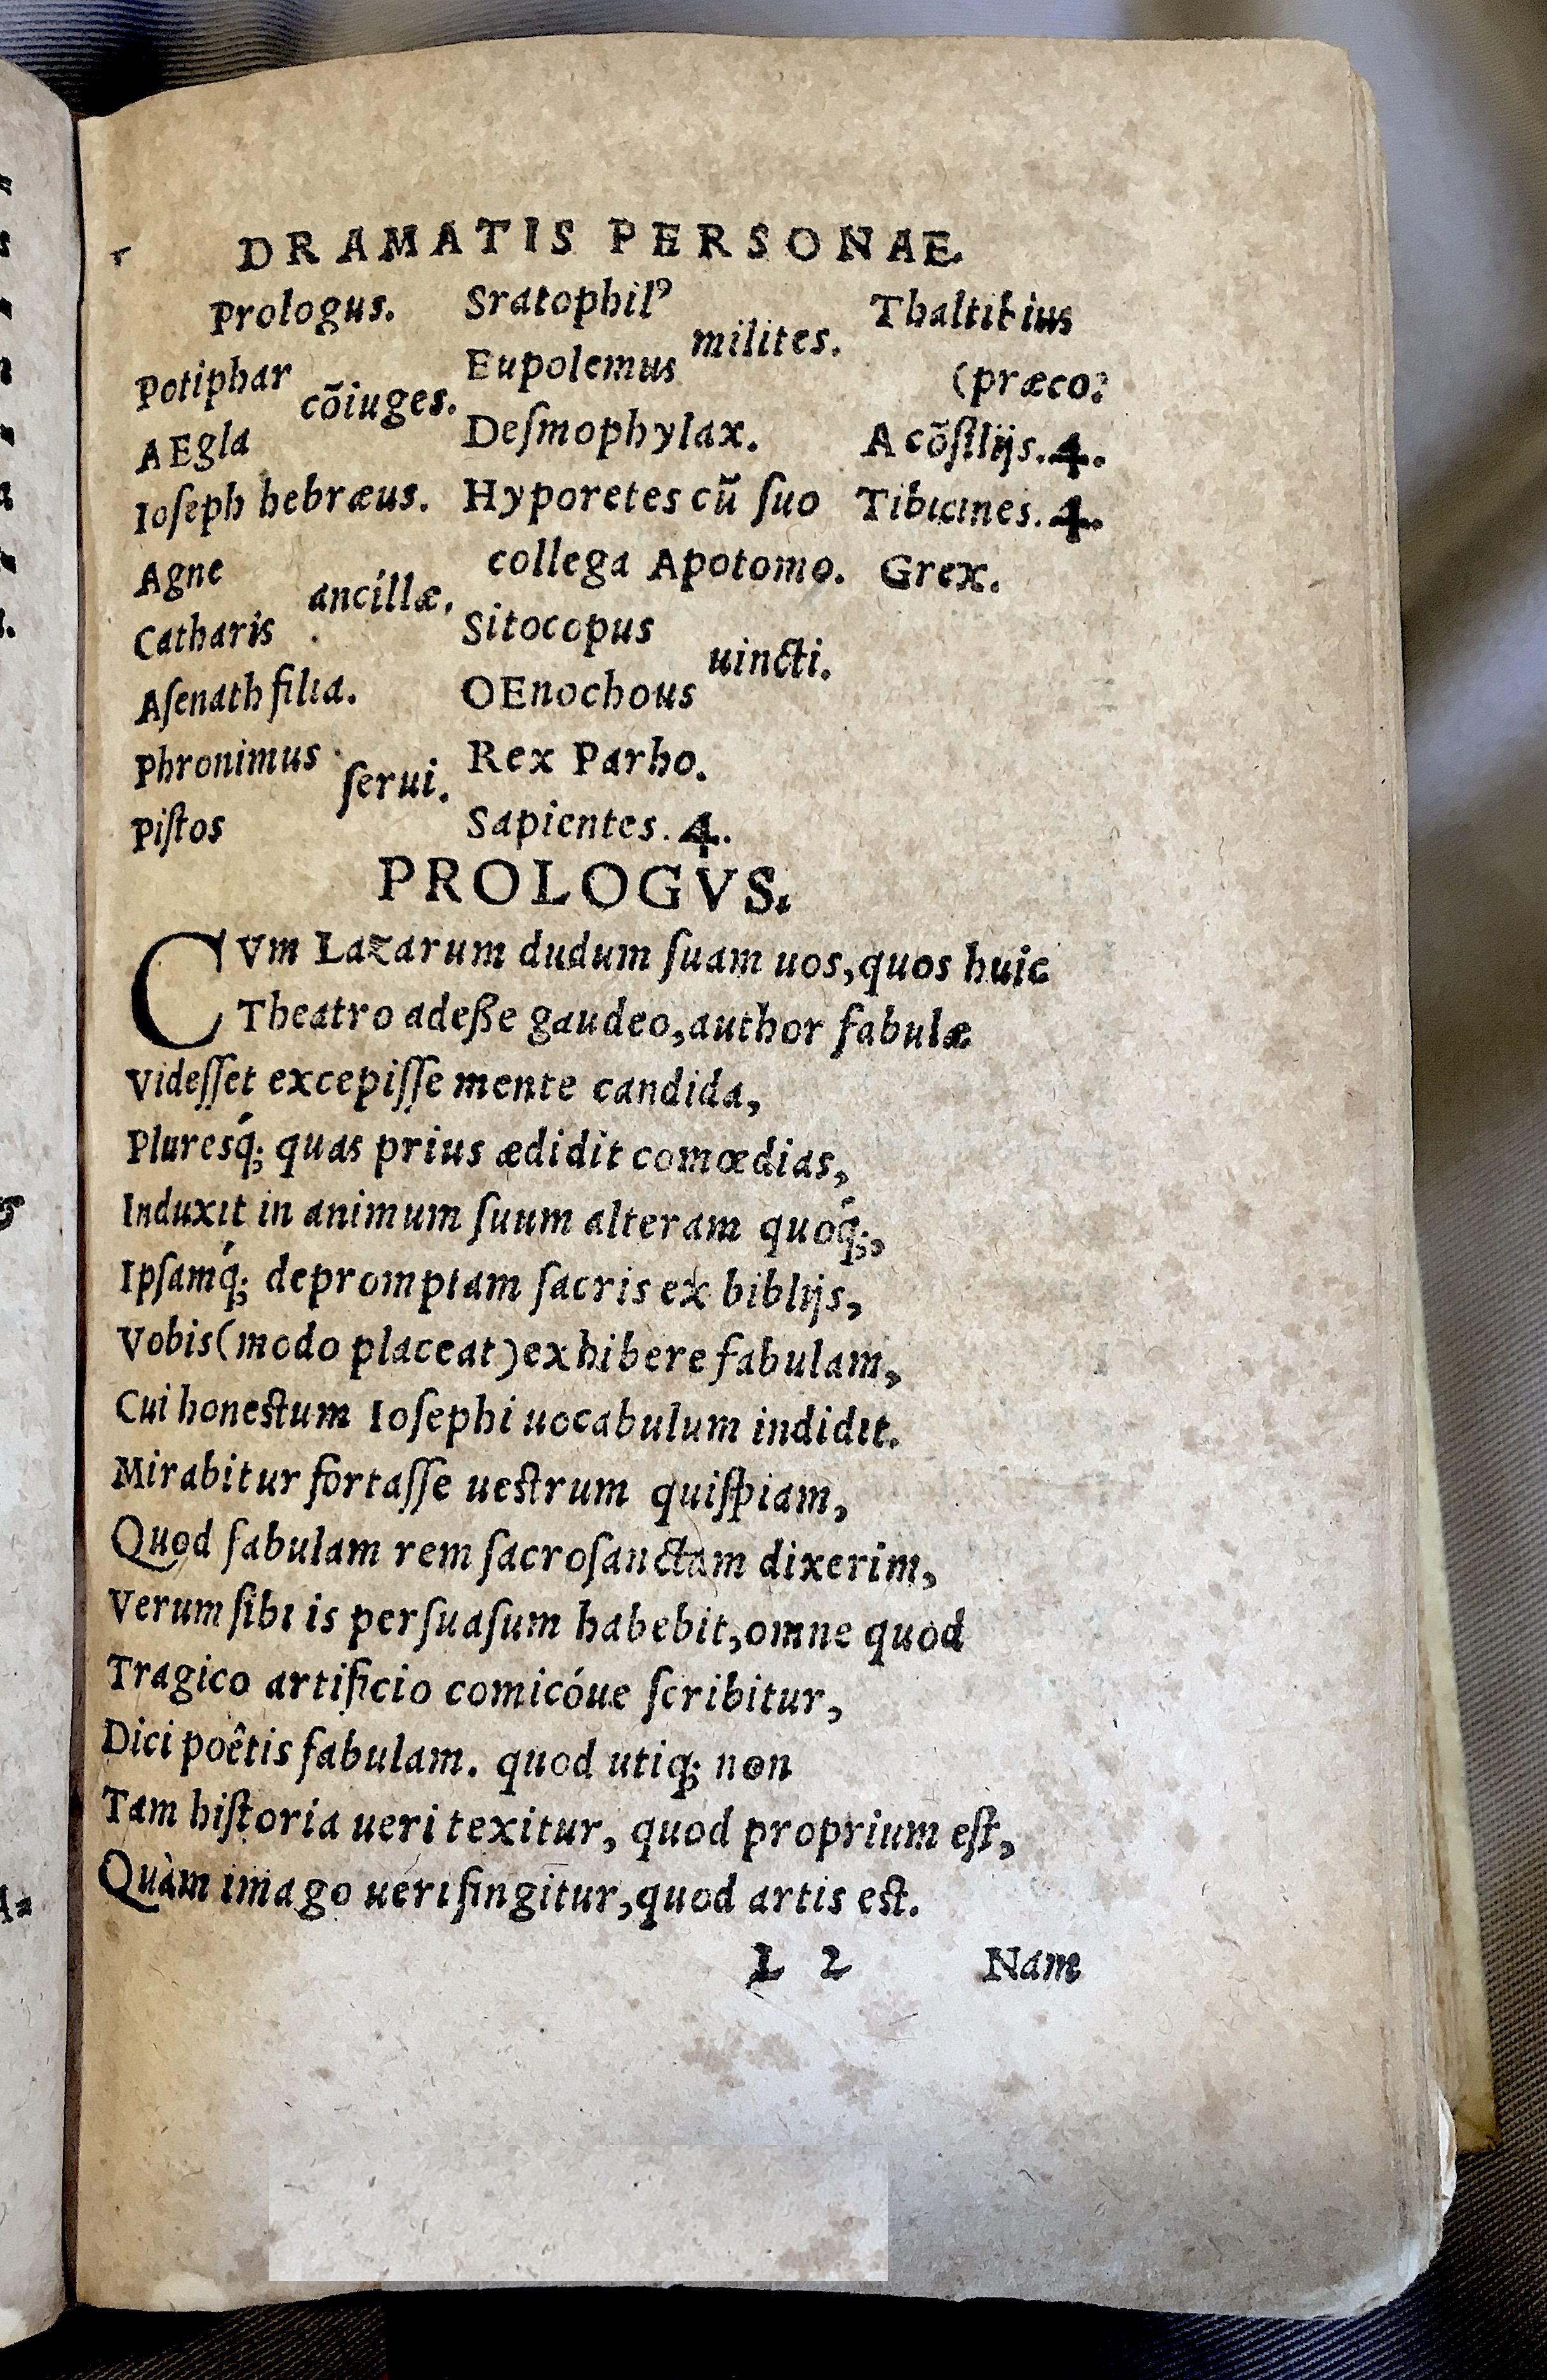 DRAMATIS PERSONAE.
Prologus.
Potiphar
cõiuges.
AEgla
Ioseph hebræus.
Agne
ancillæ.
Catharis
Asenath filia.
Phronimus
serui.
Pistos
Sratophilꝰ
milites.
Eupolemus
Desmophylax.
Hyporetes cũ suo
collega Apotomo.
Sitocopus
uincti.
OEnochous
Rex Parho.
Sapientes. 4.
Thaltibius
(præco.
A cõsilijs. 4.
Tibicines. 4.
Grex.
PROLOGVS.
CVm Lazarum dudum suam uos, quos huic
Theatro adeße gaudeo, author fabulæ
Videsset excepisse mente candida,
Pluresq́; quas prius ædidit comœdias,
Induxit in animum suum alteram quoq́;,
Ipsamq́; depromptam sacris ex biblijs,
Vobis (modo placeat) exhibere fabulam,
Cui honestum Iosephi uocabulum indidit.
Mirabitur fortasse uestrum quispiam,
Quod fabulam rem sacrosanctam dixerim,
Verum sibi is persuasum habebit, omne quod
Tragico artificio comicóue scribitur,
Dici poêtis fabulam. quod utiq; non
Tam historia ueri texitur, quod proprium est,
Quàm imago ueri fingitur, quod artis est.
L 2 Nam